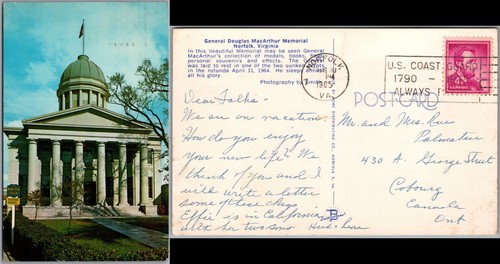 General Douglas MacArthur Memorial
Norfolk, Virginia
In this beautiful Memorial may be seen General
MacArthur's collection of medals, books,
personal souvenirs and effects. The
was laid to rest in one of the two sunken crypts
in the rotunda April 11, 1964. He sleeps amidst
all his glory.
Photography by
Dear Folks -
We are on vacation.
How do you enjoy
your new life? We
think of you and I
will write a letter
some of these days.
Effie is in California
with her two sons
NORFOLK
1965
VA.
U.S. COAST GUARD
1790 -
ALWAYS
POST CARD
Mr. and Mrs. Rae
Palmatier
430 A. George Street
Cobourg
Canada
Ont